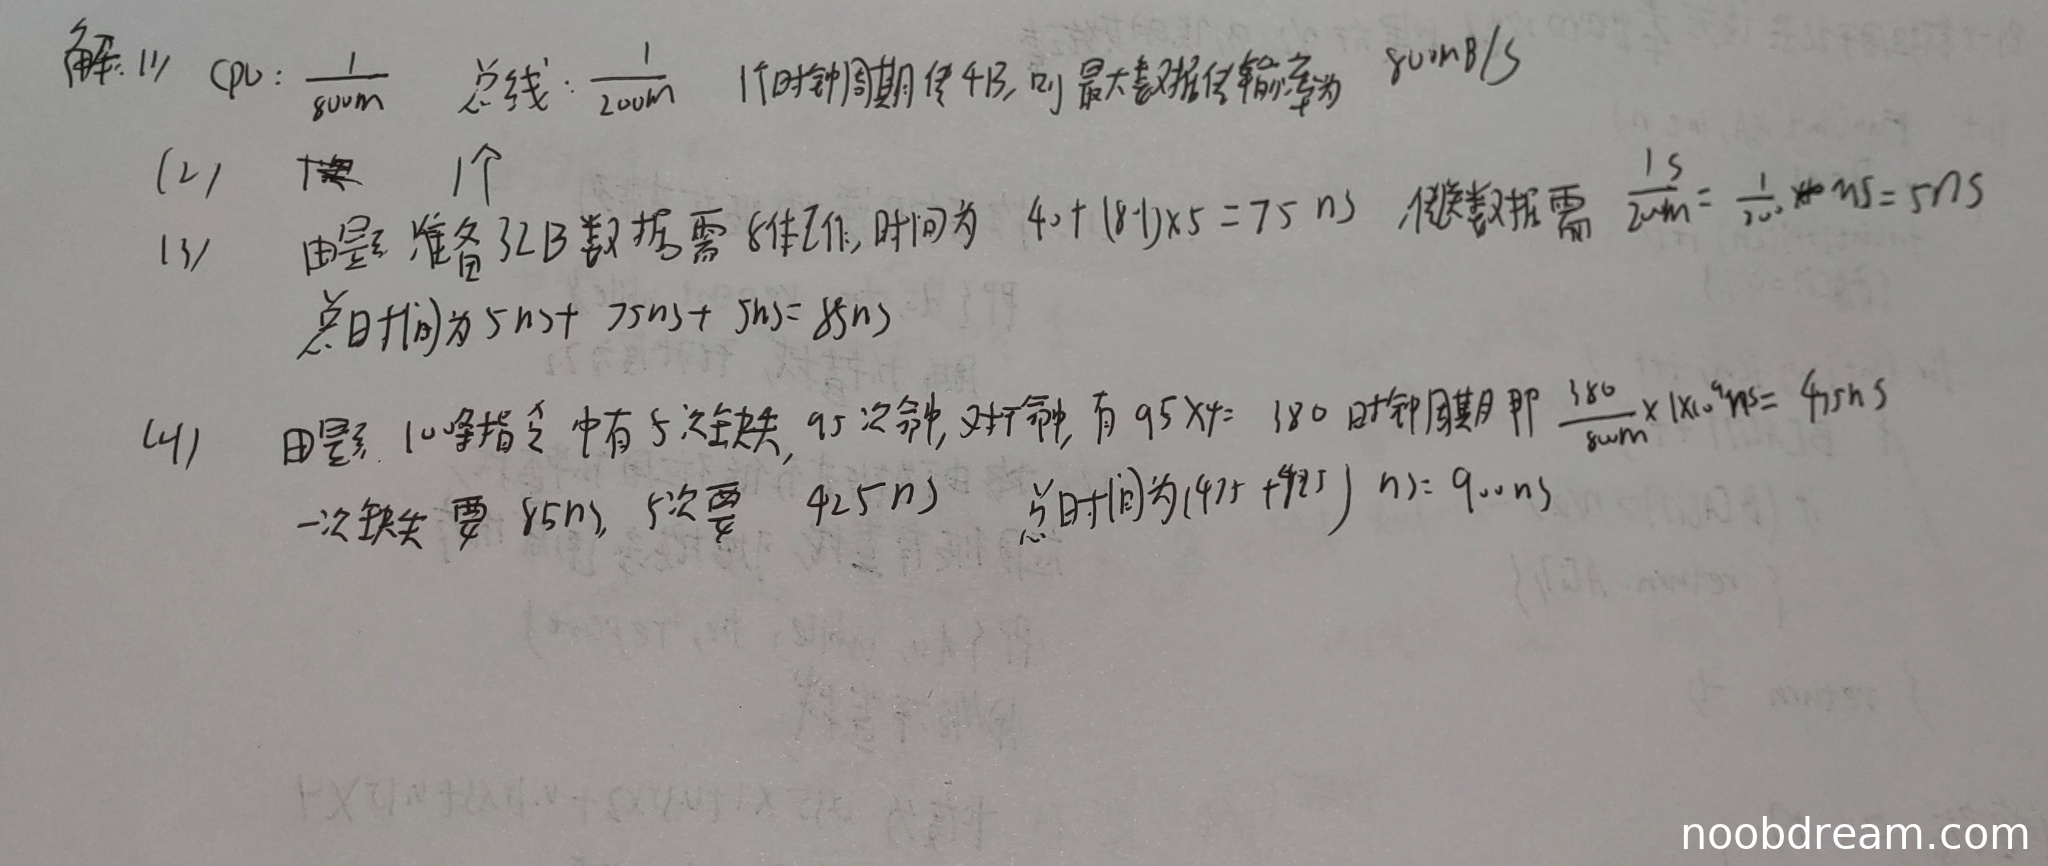 解:(1) CPU: 1/800m 总线: 1/200m 1个时钟周期传4B,则最大数据传输率为 800mB/S
(2) 1个
(3) 由题 准备32B数据需8体工作,时间为 40+(8-1)×5=75ns 传送数据需 1S/200m = 1/200 ns=5ns
总时间为5ns+ 75ns+ 5ns= 85ns
(4) 由题 100条指令中有5次缺失, 95次命中,对于命中,有95×4= 380时钟周期即 380/800m ×1×10⁹ns= 475ns
一次缺失要 85ns, 5次要 425ns 总时间为(475+425) ns= 900ns
noobdream.com